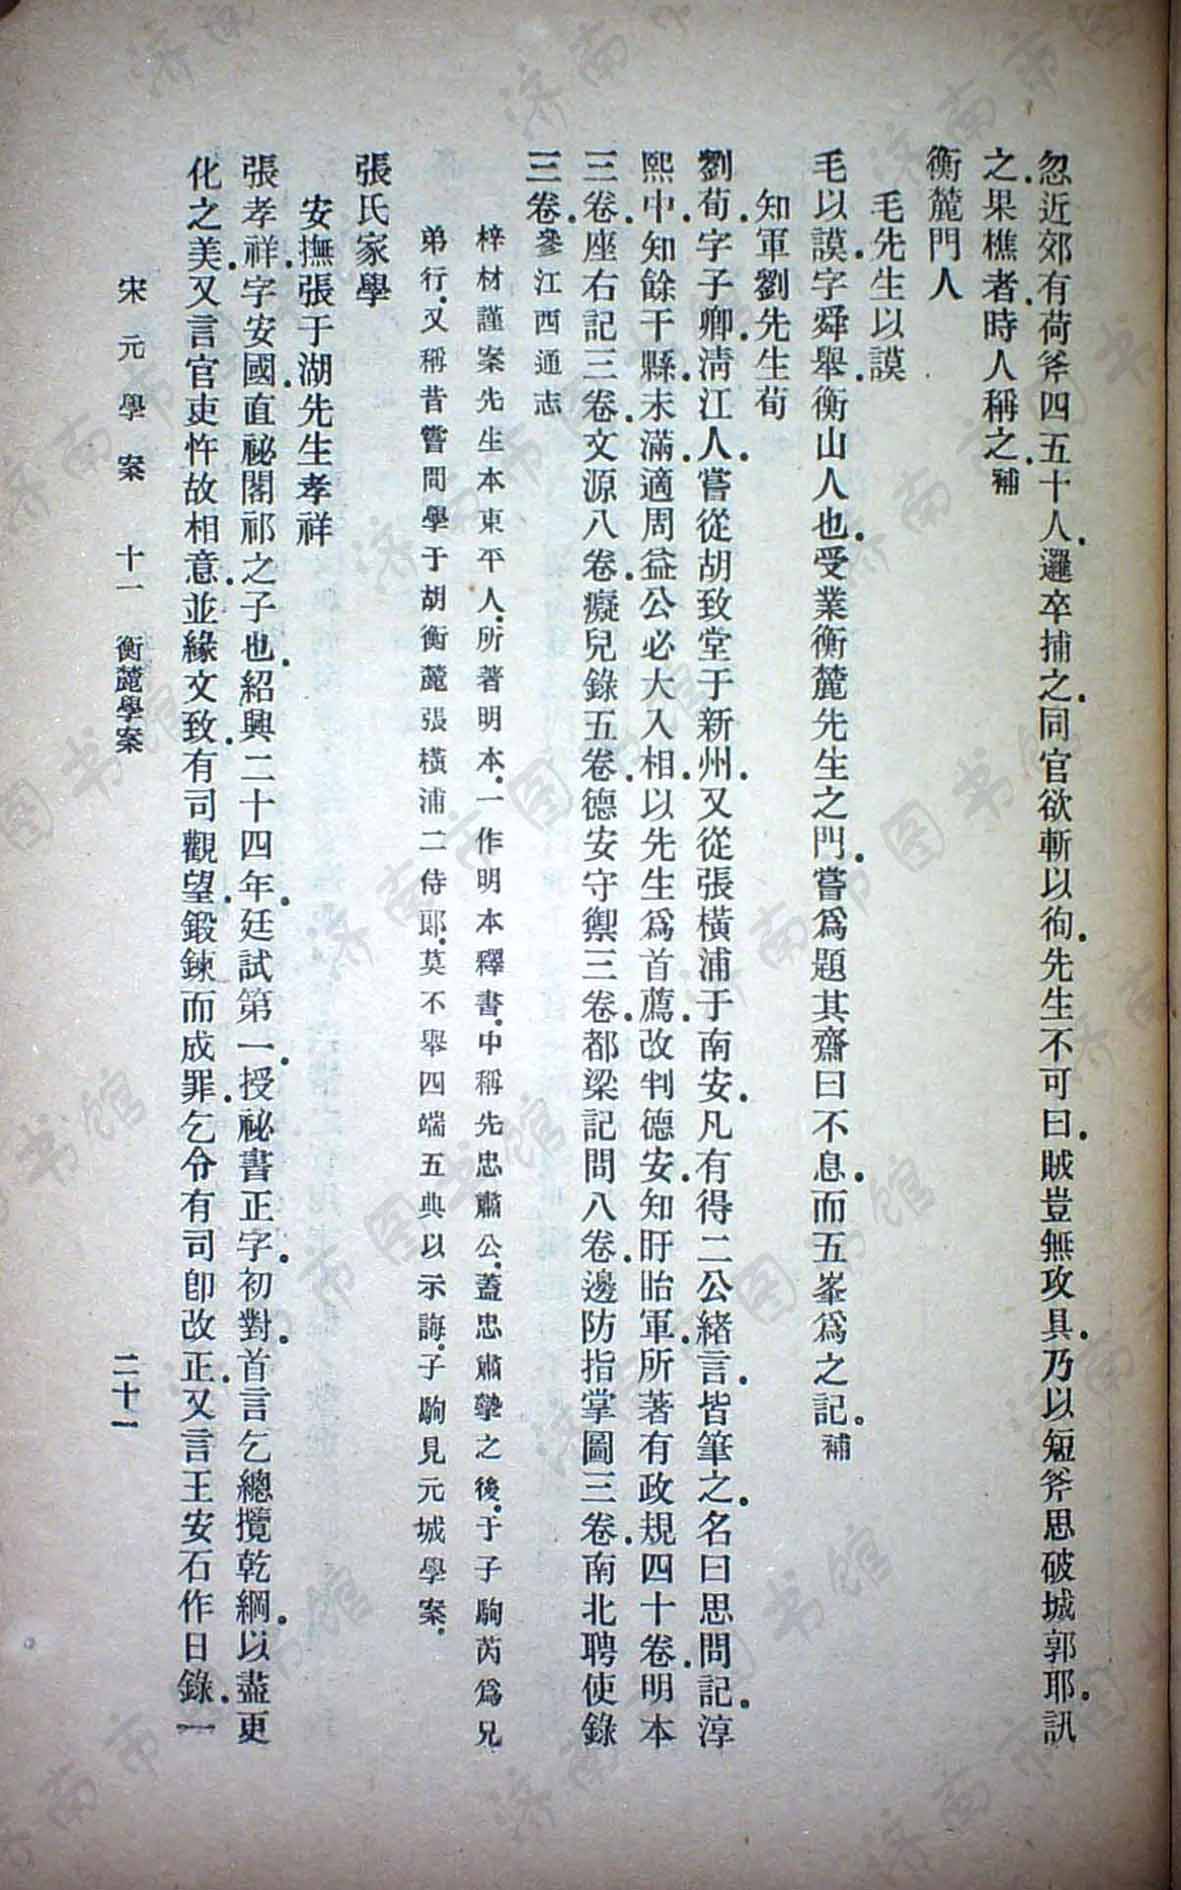 忽近郊有荷斧四五十人.邏卒捕之.同官欲斬以徇.先生不可曰.賊豈無攻具.乃以短斧思破城郭耶.訊
之.果樵者.時人稱之.補
衡麓門人
毛先生以謨
毛以謨.字舜舉.衡山人也.受業衡麓先生之門.嘗爲題其齋曰不息.而五峯爲之記。補
知軍劉先生荀
劉荀.字子卿.淸江人.嘗從胡致堂于新州.又從張橫浦于南安.凡有得二公緖言.皆筆之.名曰思問記.淳
熙中.知餘干縣.末滿.適周益公必大入相.以先生爲首薦.改判德安.知盱眙軍.所著有政規四十卷.明本
三卷.座右記三卷.文源八卷.癡兒錄五卷.德安守禦三卷.都梁記問八卷.邊防指掌圖三卷.南北聘使錄
三卷.參江西通志
梓材謹案先生本東平人.所著明本.一作明本釋書.中稱先忠肅公.蓋忠肅摯之後.于子駒芮爲兄
弟行.又稱昔嘗問學于胡衡麓張橫浦二侍郎.莫不舉四端五典以示誨.子駒見元城學案.
張氏家學
安撫張于湖先生孝祥
張孝祥.字安國.直祕閣祁之子也.紹興二十四年.廷試第一.授祕書正字.初對.首言乞總攬乾綱.以盡更
化之美.又言官吏忤故相意.並緣文致.有司觀望.鍛鍊而成罪.乞令有司卽改正.又言王安石作日錄.一
宋元學案 十一 衡麓學案 二十一